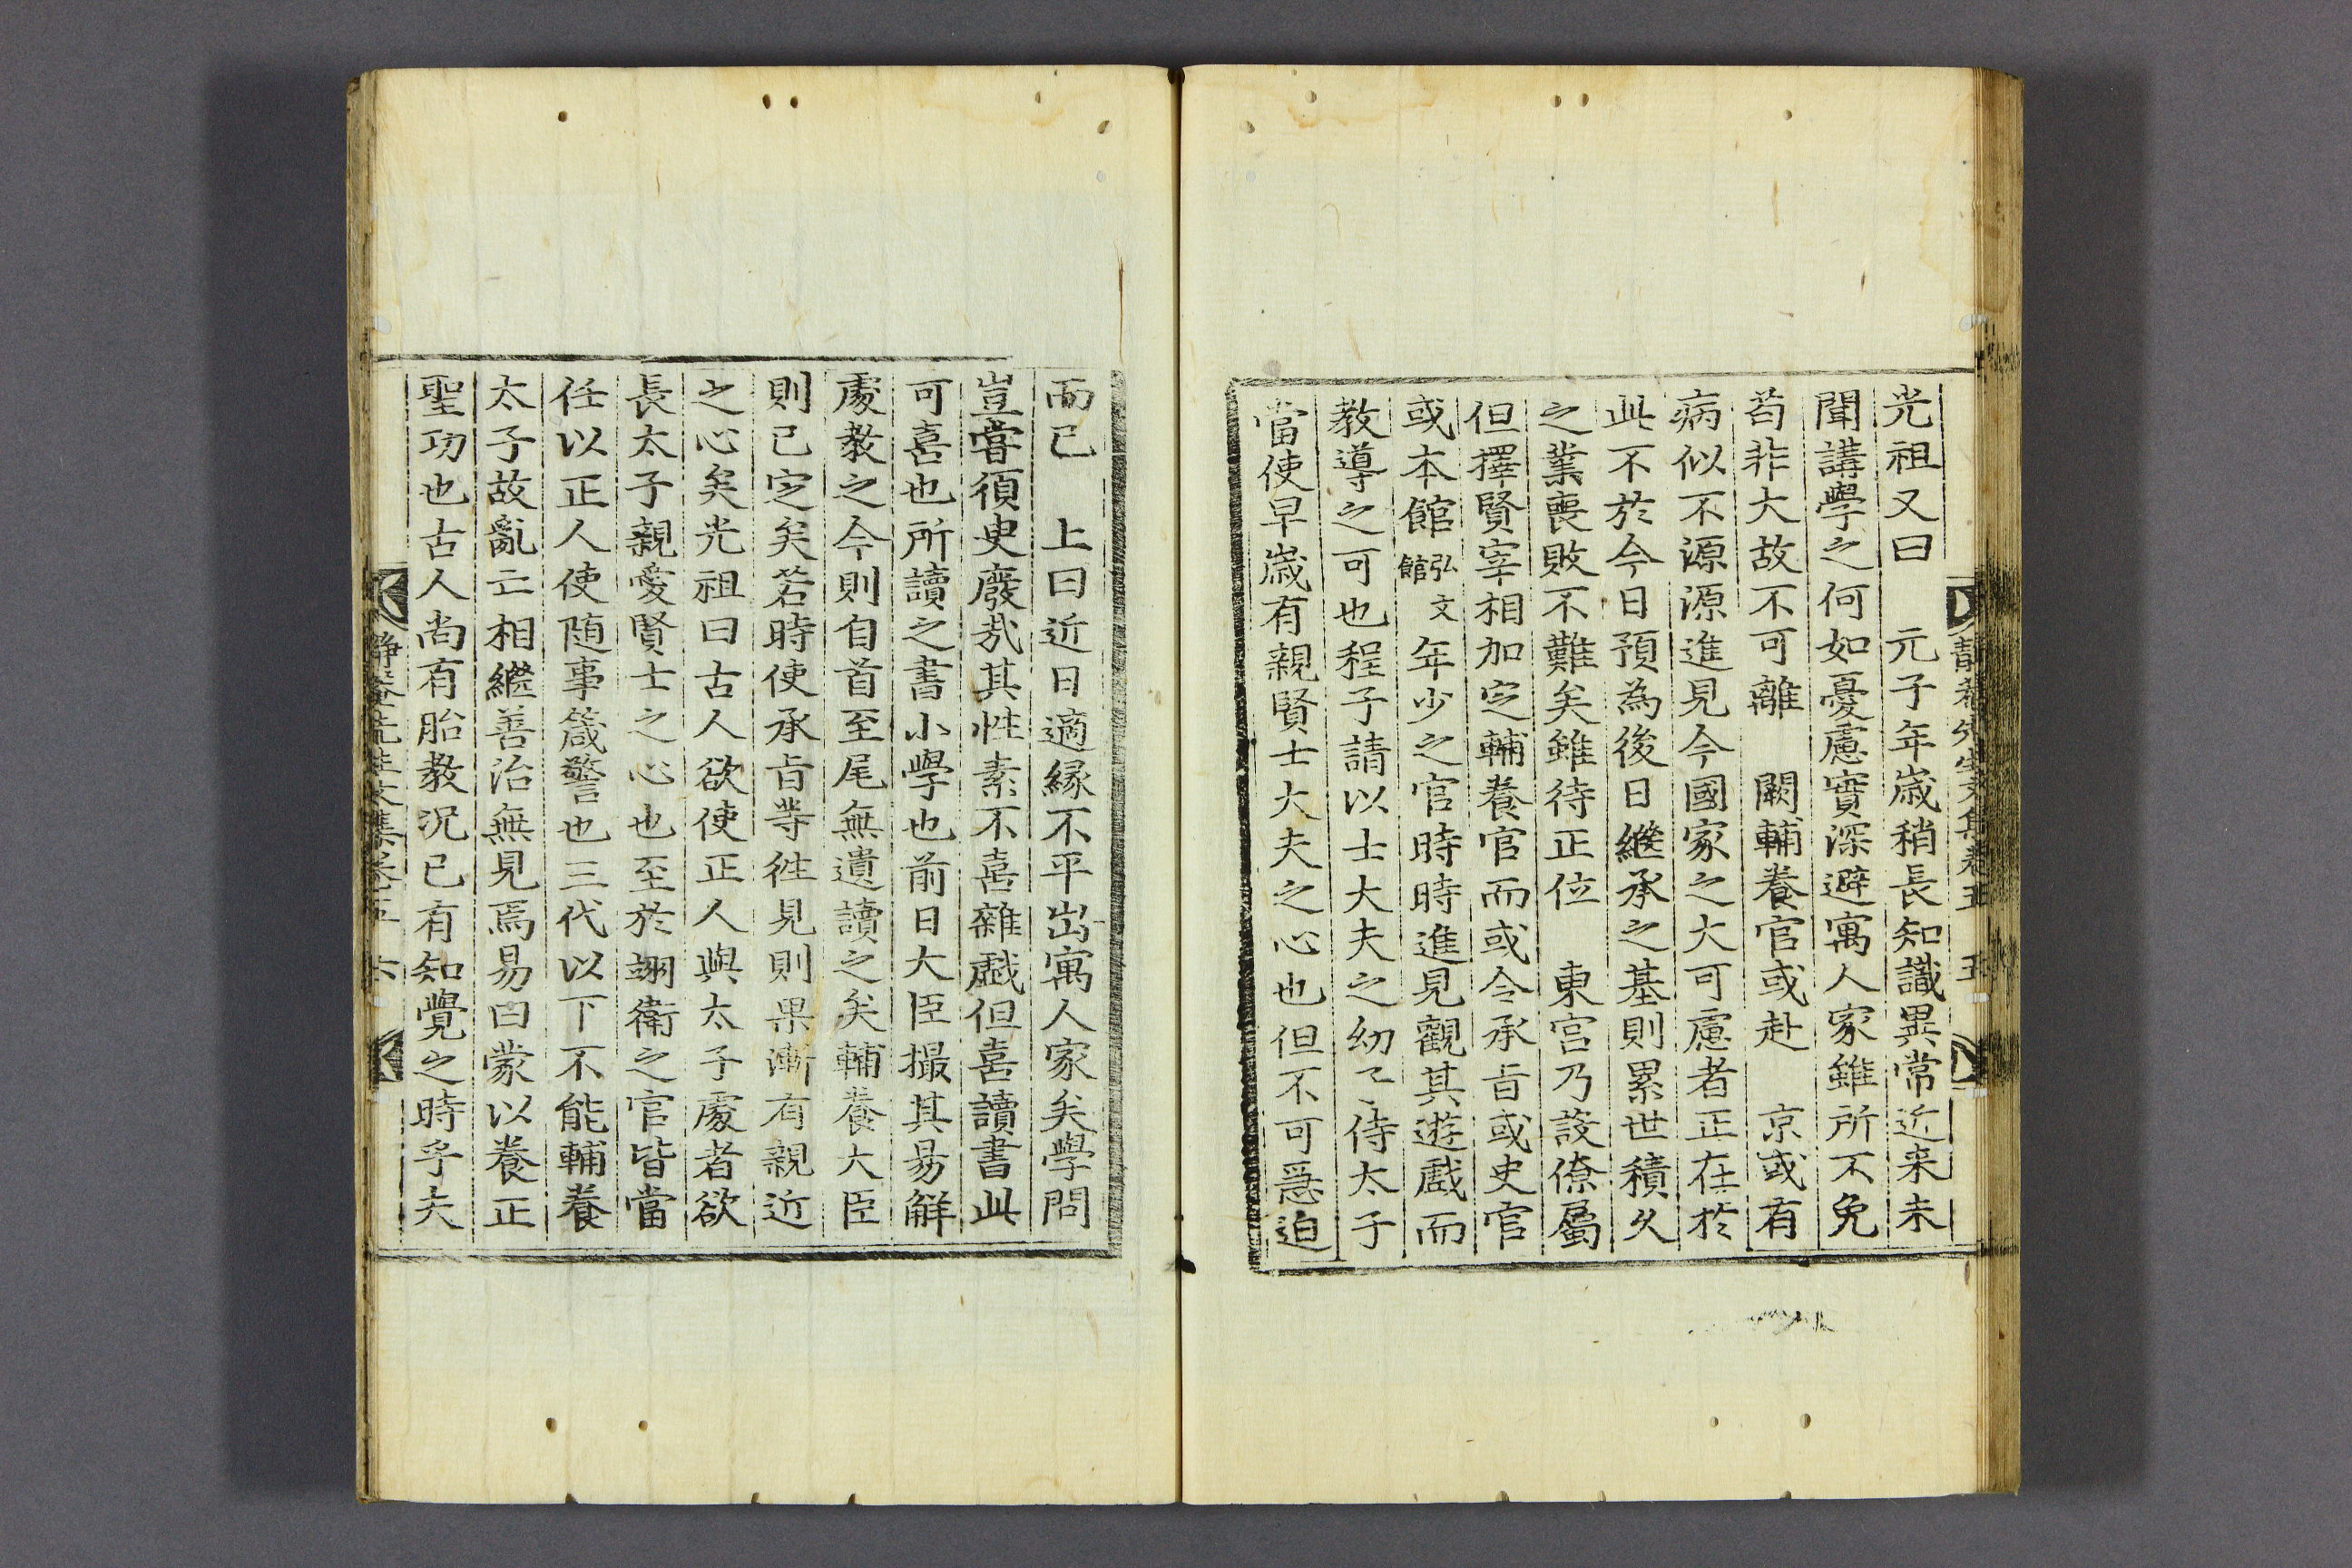 靜菴先生文集卷五 五
光祖又曰 元子年歲稍長知識異常近来未
聞講學之何如憂慮實深避寓人家雖所不免
苟非大故不可離 闕輔養官或赴 京或有
病似不源源進見今國家之大可慮者正在於
此不於今日預為後日繼承之基則累世積久
之業喪敗不難矣雖待正位 東宮乃設僚屬
但擇賢宰相加定輔養官而或令承旨或史官
或本館弘文館年少之官時時進見觀其遊戲而
教導之可也程子請以士大夫之幼子侍太子
當使早歲有親賢士大夫之心也但不可急迫
而已 上曰近日適緣不平出寓人家矣學問
豈嘗須臾廢哉其性素不喜雜戲但喜讀書此
可喜也所讀之書小學也前日大臣撮其易解
處教之今則自首至尾無遺讀之矣輔養大臣
則已定矣若時使承旨等徃見則果漸有親近
之心矣光祖曰古人欲使正人與太子處者欲
長太子親愛賢士之心也至於翊衛之官皆當
任以正人使随事箴警也三代以下不能輔養
太子故亂亡相繼善治無見焉易曰蒙以養正
聖功也古人尚有胎教況已有知覺之時乎夫
靜菴先生文集卷五 六